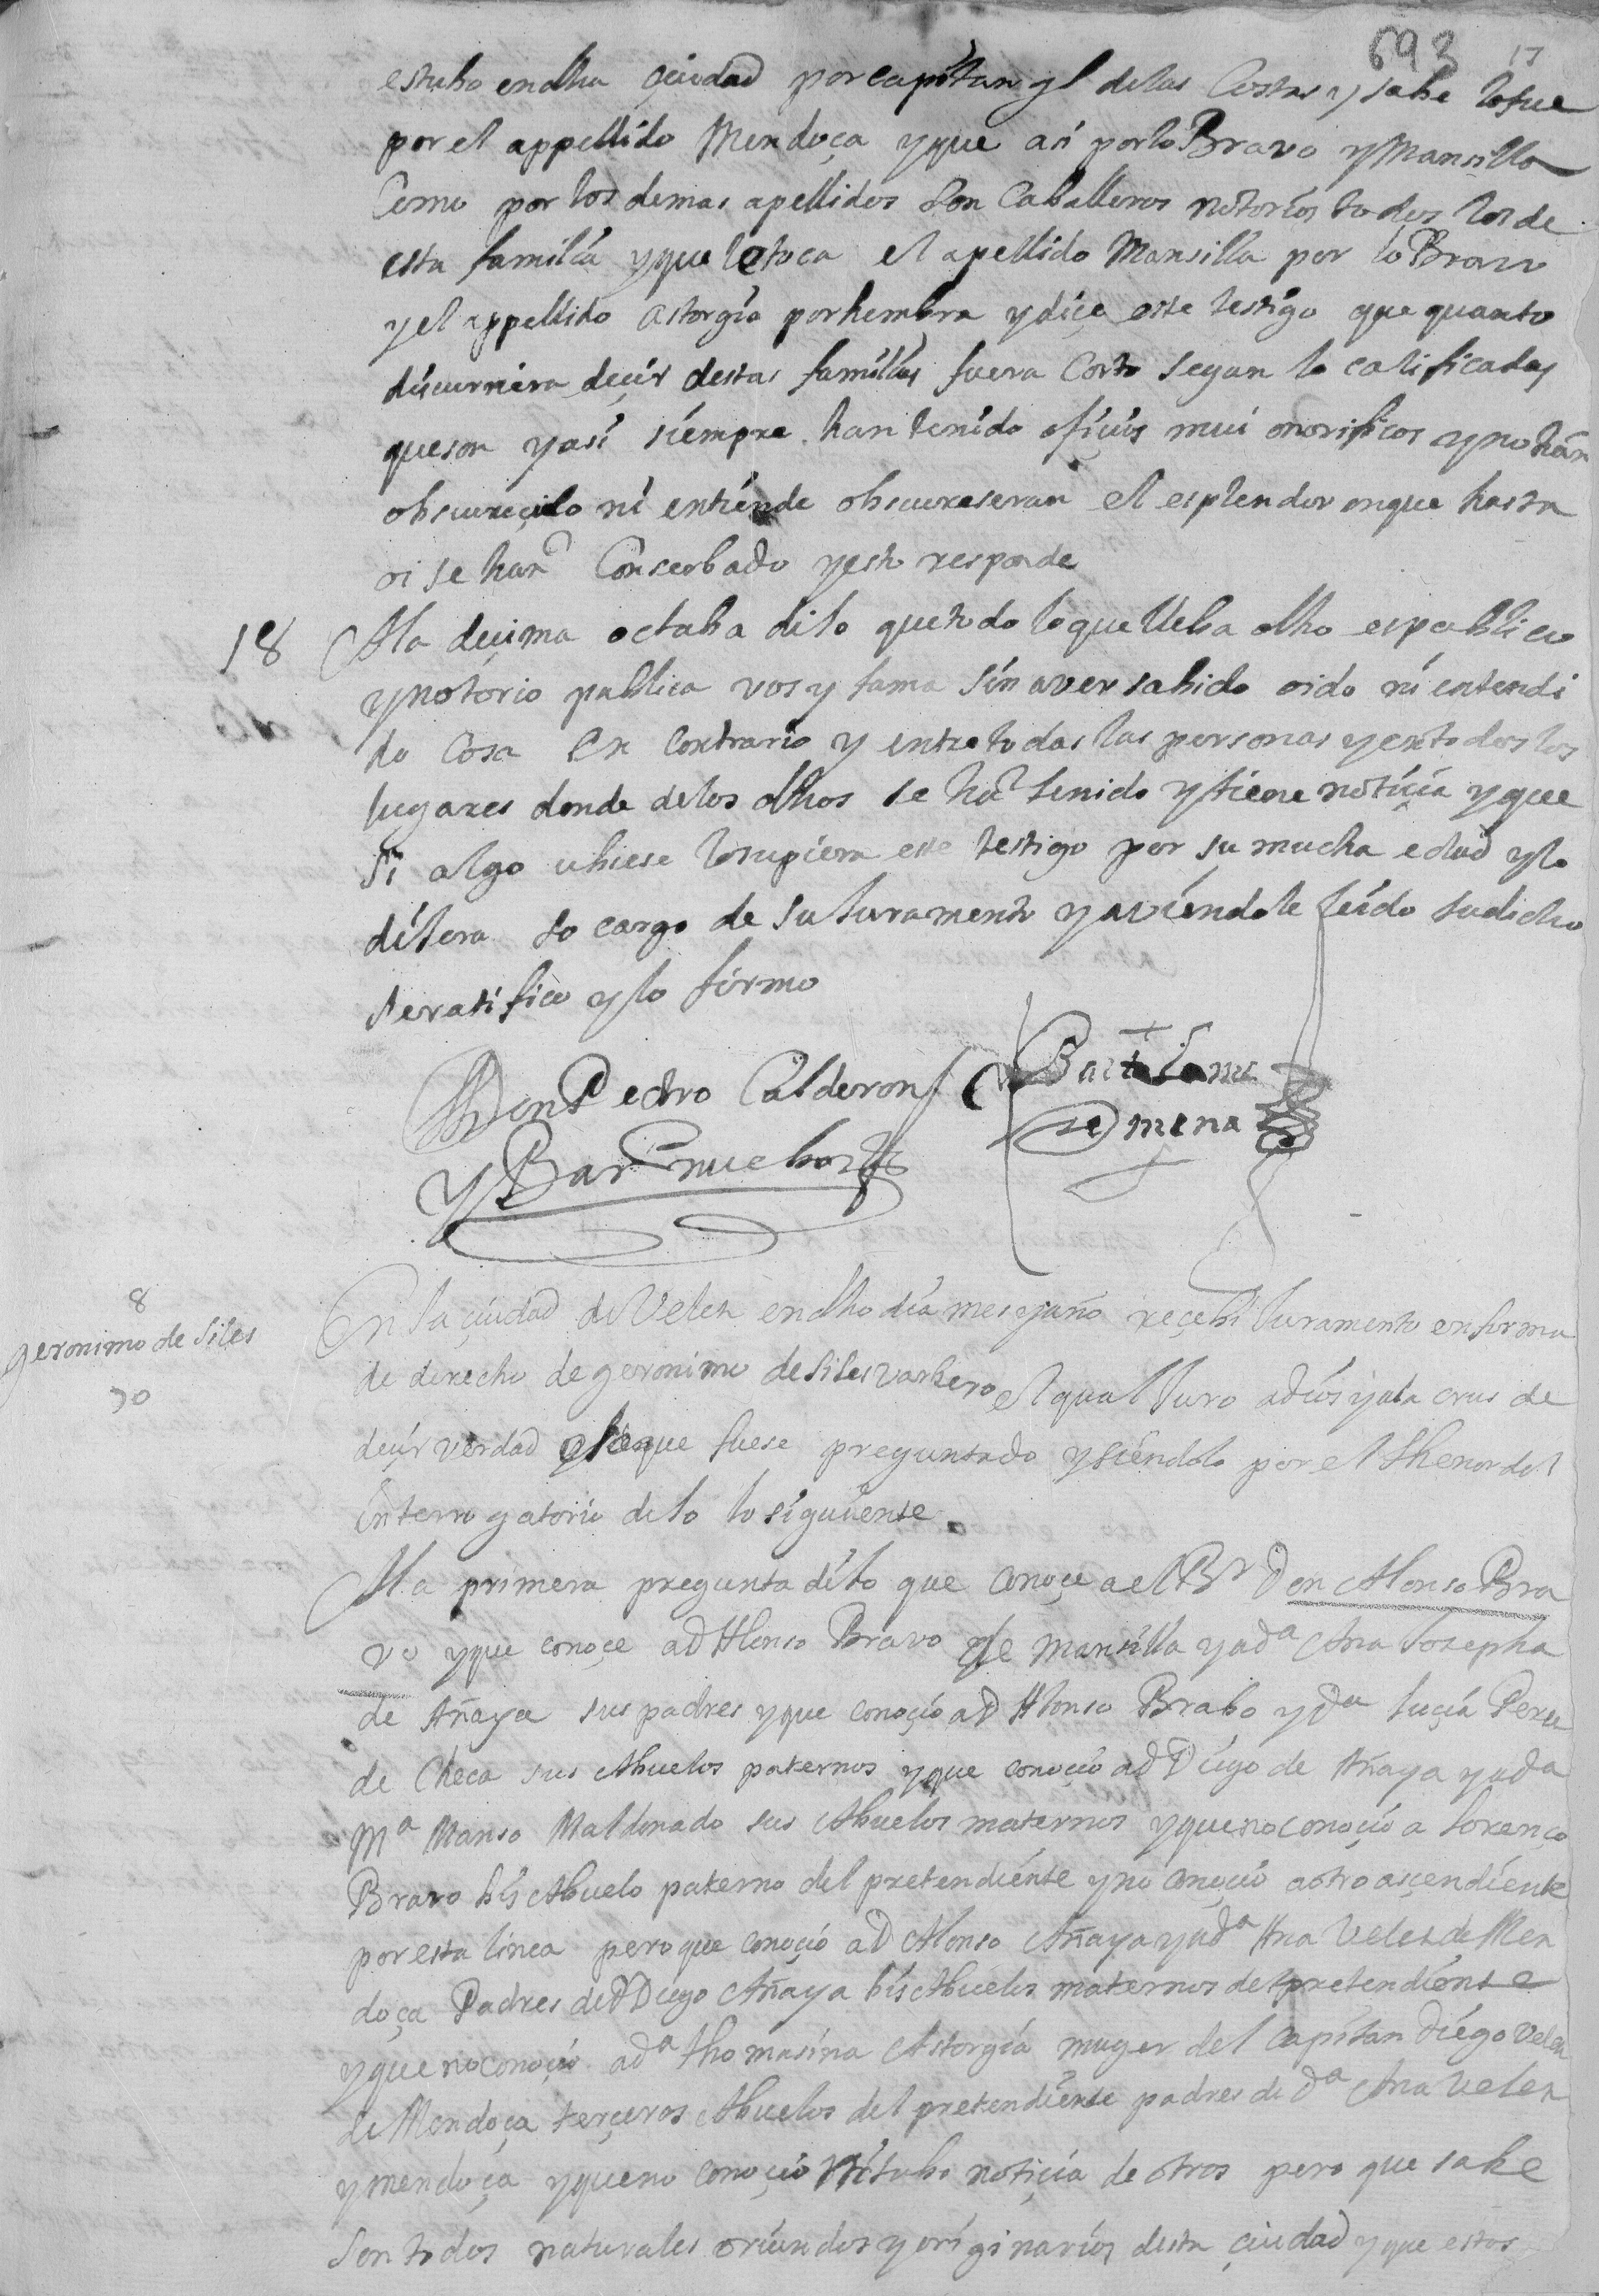 693 17
estubo en dha çiudad por capitan gl de las Costas y sabe lo fue
por el appellido Mendoça y que asi por lo Bravo y Mansilla
Como por los demas apellidos son Caballeros notorios todos los de
esta familia y que le toca el apellido Mansilla por lo Bravo
y el appellido astorgia por hembra y diçe este testigo que quanto
discurriera deçir destas familias fuera Corto segun lo calificadas
que son y asi siempre han tenido ofiçios mui onorificos y no han
obscureçido ni entiende obscureseran el esplendor en que hasta
oi se han Conserbado y esto responde
18 A la deçima octaba dijo que todo lo que lleba dho es publico
y notorio publica vos y fama sin aver sabido oido ni entendi
do Cosa En Contrario y entre todas las personas y en todos los
lugares donde de los dhos se ha tenido y tiene notiçia y que
si algo ubiese lo supiera este testigo por su mucha edad y lo
dijera so cargo de su Juramento y aviendole leido su dicho
se ratifico y lo firmo
Don Pedro Calderon
y Barnuebo
Bartolome
de mena
8
geronimo de Siles
70
En la çiudad de Velez en dho dia mes y año reçebi Juramento en forma
de derecho de geronimo de Siles varbero el qual Juro a dios y a la crus de
deçir verdad que fuese preguntado y siendolo por el thenor del
interrogatorio dijo lo siguiente
A la primera pregunta dijo que conoçe a el Br Don Alonso Bra
vo y que conoçe a D Alonso Bravo de Mansilla y a da Ana Josepha
de Añaya sus padres y que conoçio a D Alonso Brabo y da luçia Perez
de Checa sus Abuelos paternos y que conoçio a D Diego de Añaya y a da
Ma Manso Maldonado sus Abuelos maternos y que no conoçio a lorenço
Bravo bis Abuelo paterno del pretendiente y no conoçio a otro asçendiente
por esta linea pero que conoçio a D Alonso Añaya y a da Ana Velez de Men
doça Padres de D Diego Añaya bis Abuelos maternos del pretendiente
y que no conoçio a da thomasina Astorgia muger del capitan diego Velez
de Mendoça terçeros Abuelos del pretendiente padres de da Ana Velez
y mendoça y que no conoçio ni tubo notiçia de otros pero que sabe
son todos naturales oriundos y originarios desta çiudad y que estos